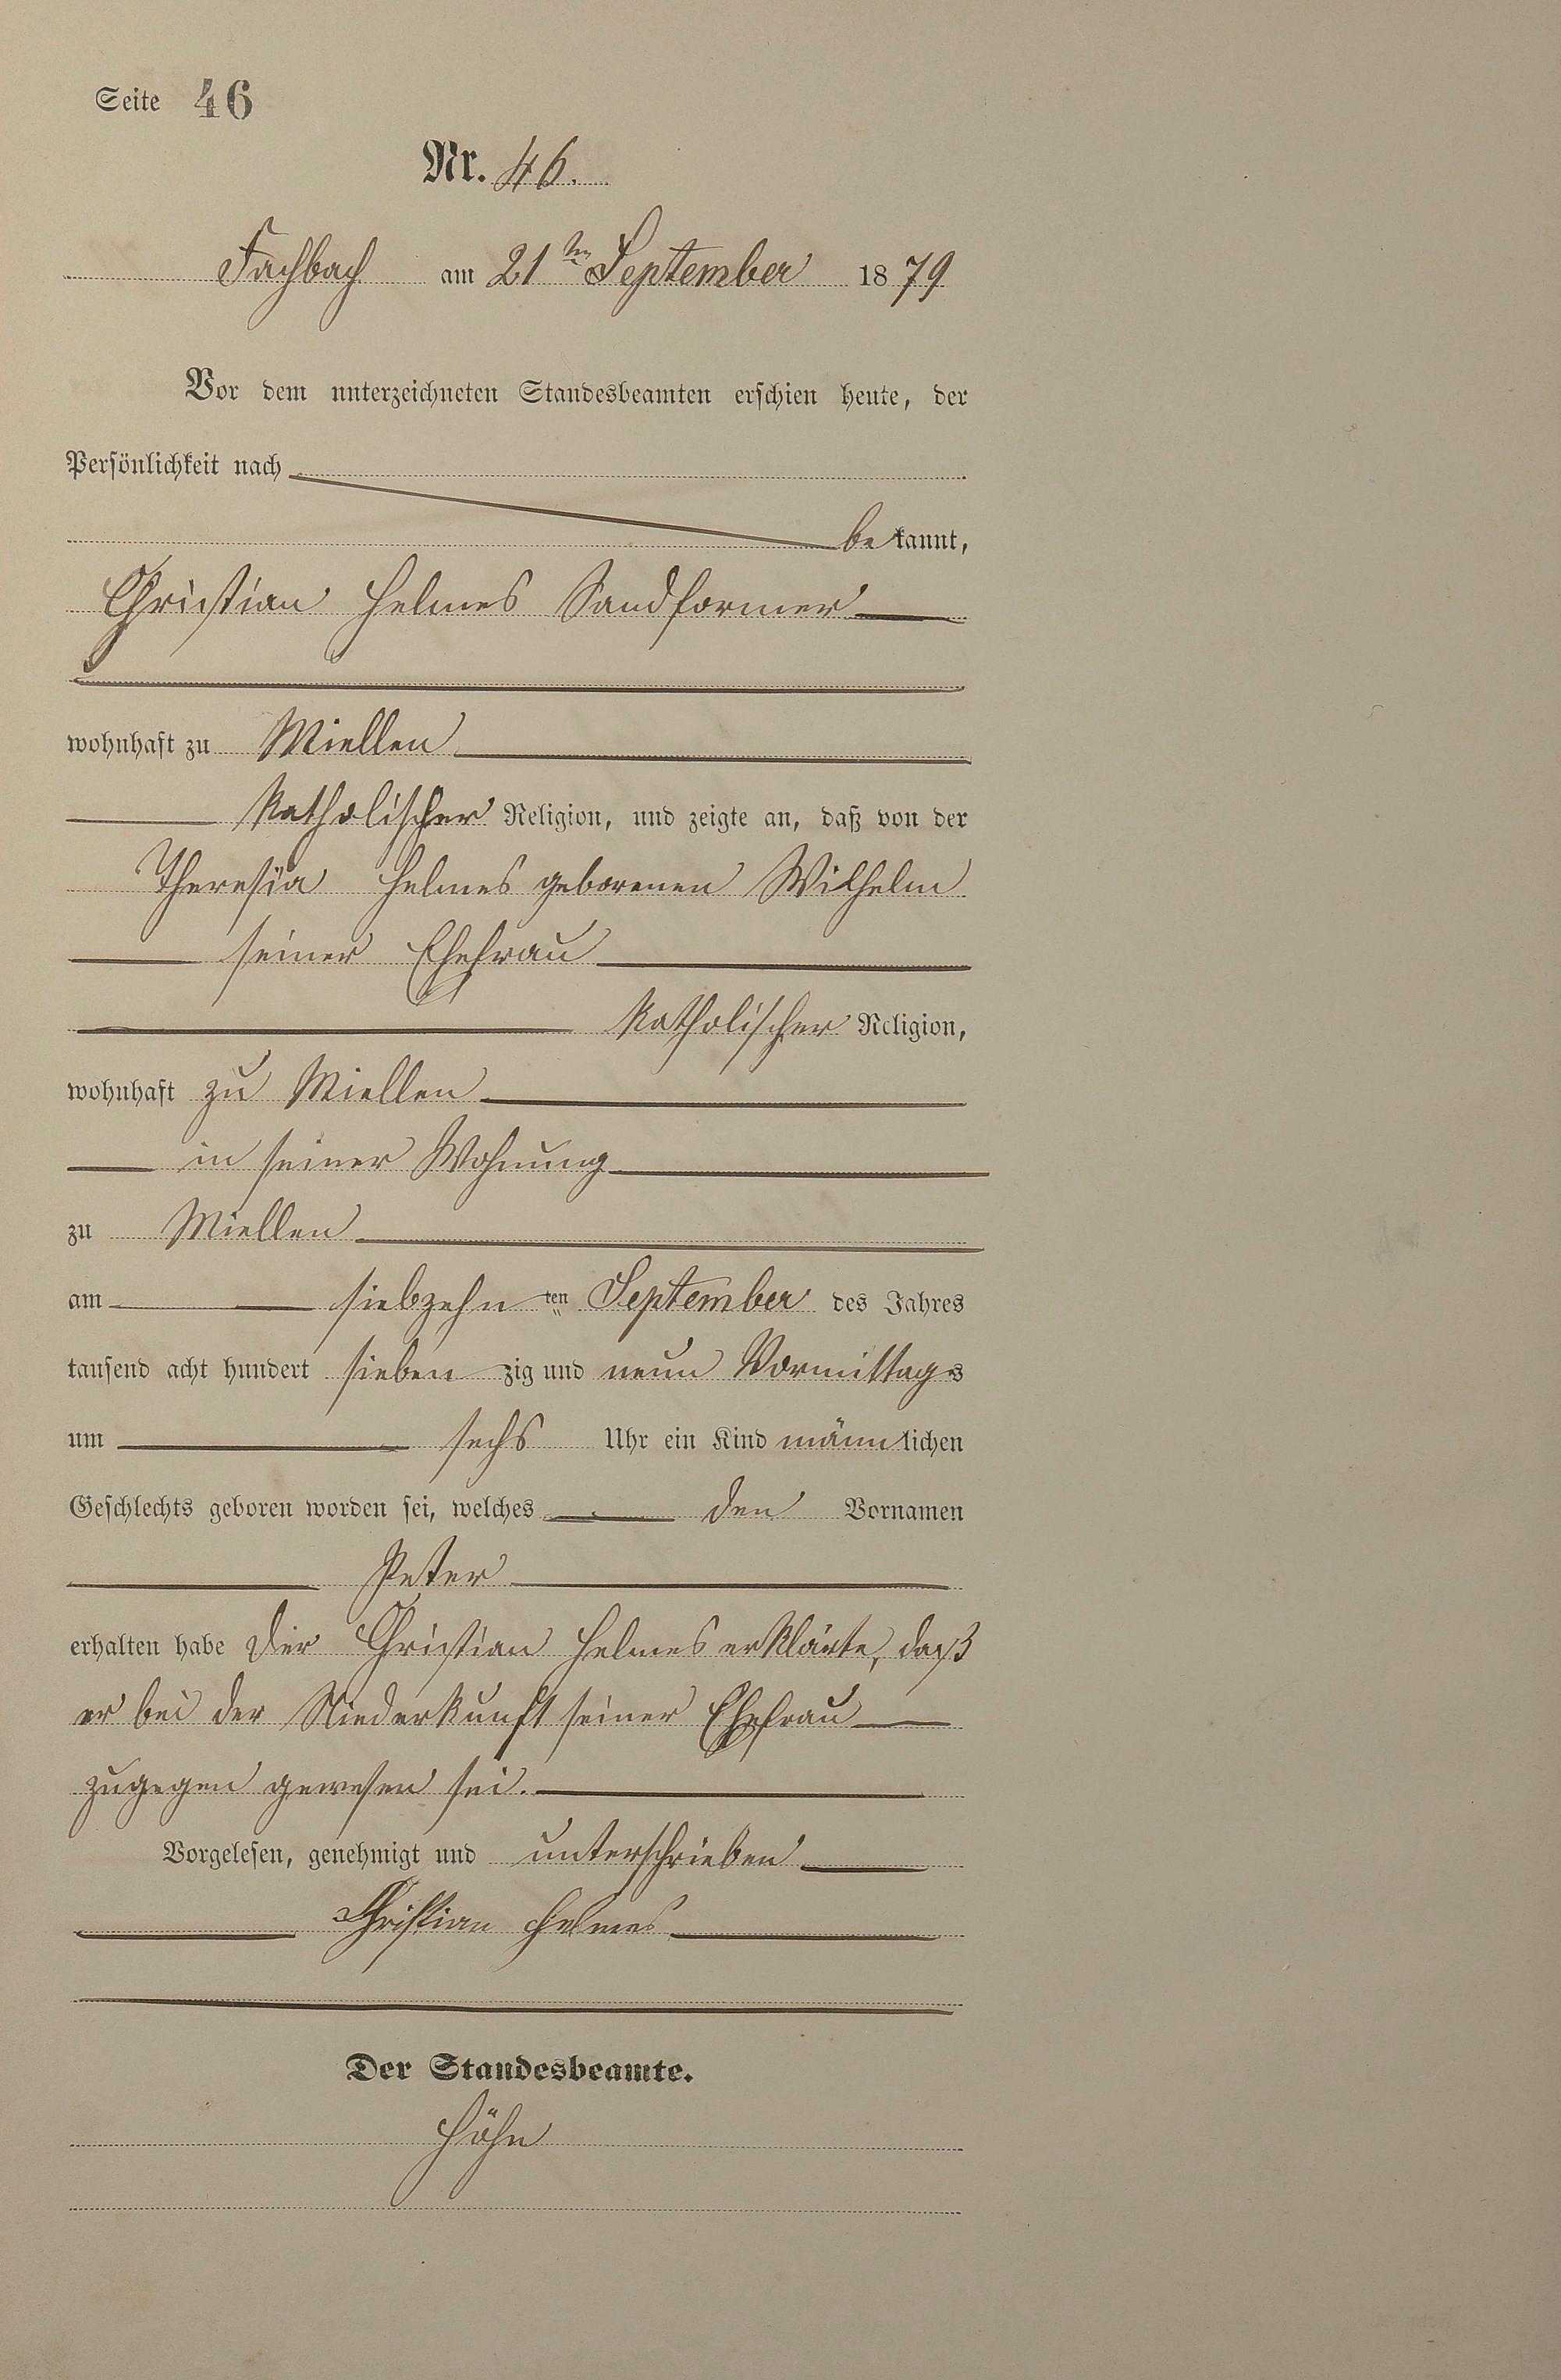 Seite 46
Nr. 46.
Fachbach am 21ten September 1879
Vor dem unterzeichneten Standesbeamten erschien heute, der
Persönlichkeit nach
bekannt,
Christian Helmes Sandformer
wohnhaft zu Miellen
katholischer Religion, und zeigte an, daß von der
Theresia Helmes geborenen Wilhelm
seiner Ehefrau
katholischer Religion,
wohnhaft zu Miellen
in seiner Wohnung
zu Miellen
am siebzehnten September des Jahres
tausend acht hundert siebenzig und neun Vormittags
um sechs Uhr ein Kind männlichen
Geschlechts geboren worden sei, welches den Vornamen
Peter
erhalten habe Der Christian Helmes erklärte, daß
er bei der Niederkunft seiner Ehefrau
zugegen gewesen sei.
Vorgelesen, genehmigt und unterschrieben
Christian Helmes
Der Standesbeamte.
Höhn